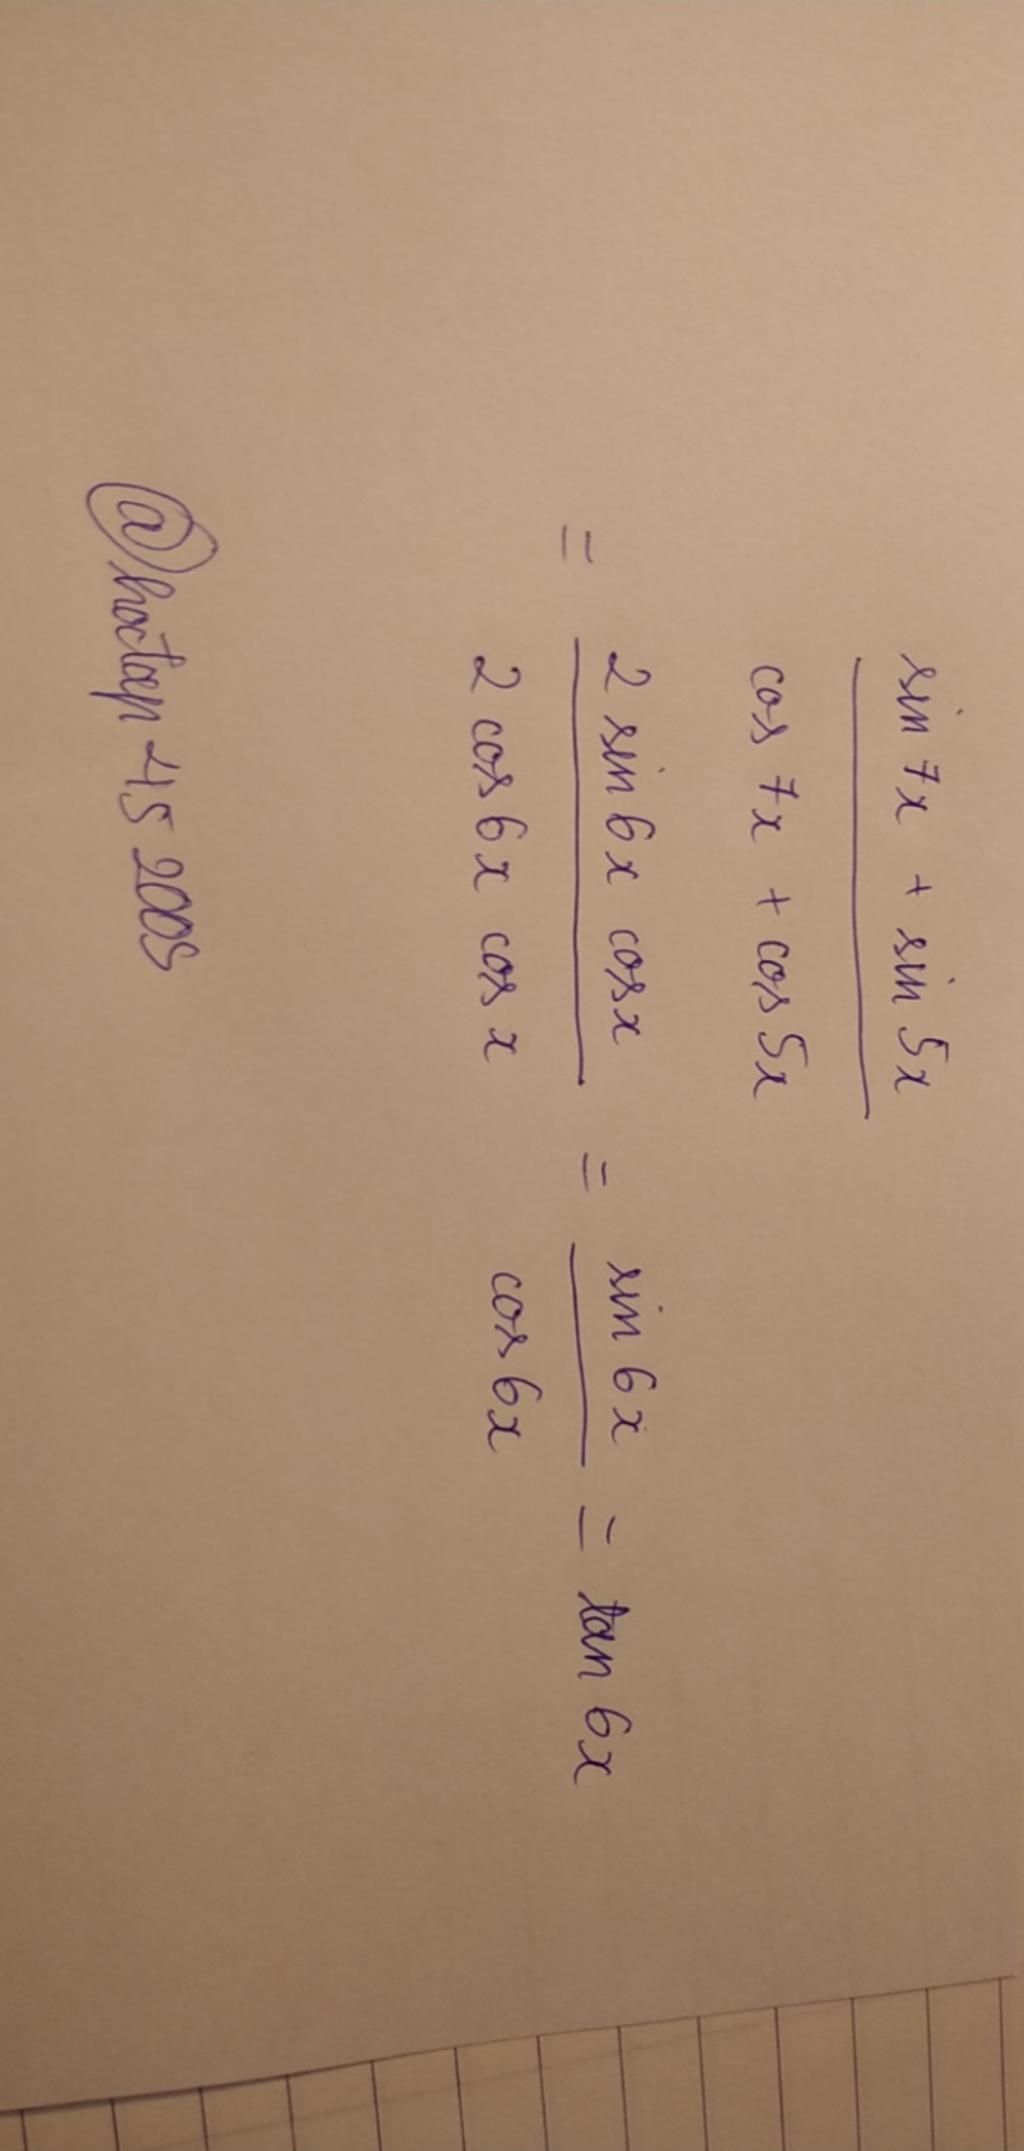 sin 7x + sin 5x
cos 7x + cos 5x
= 2 sin 6x cos x = sin 6x = tan 6x
2 cos 6x cos x cos 6x
@hoctap-45 2005